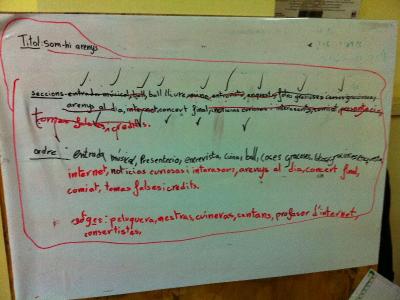 Titol: som-hi arenys
seccions: entrada músical, ball, ball lliure, cuina, entrevista, esquets, fotos gracioses
arenys al dia, internet, concert final, noticias curiosas i interasors, comiat, presentacio,
tomas falses, crèdits.
ordre: entrada, músical, Presentacio, entrevista, cuina, ball, coses gracioses,
internet, noticias curiosas i interasors, arenys al dia, concert final,
comiat, tomas falses i credits.
rètges: peluquera, mestras, cuineras, cantans, profasor d'internet,
consertistes,